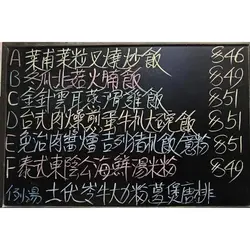 A 菜甫菜粒叉燒炒飯 $46
B 冬瓜北菇火腩飯 $49
C 金針雲耳蒸滑雞飯 $51
D 台式肉燥煎蛋牛扒大碗飯 $51
E 免治肉醬燴吉列豬扒飯意粉 $51
F 泰式東陰公海鮮湯米粉 $49
例湯 土伏苓牛大力粉葛煲唐排